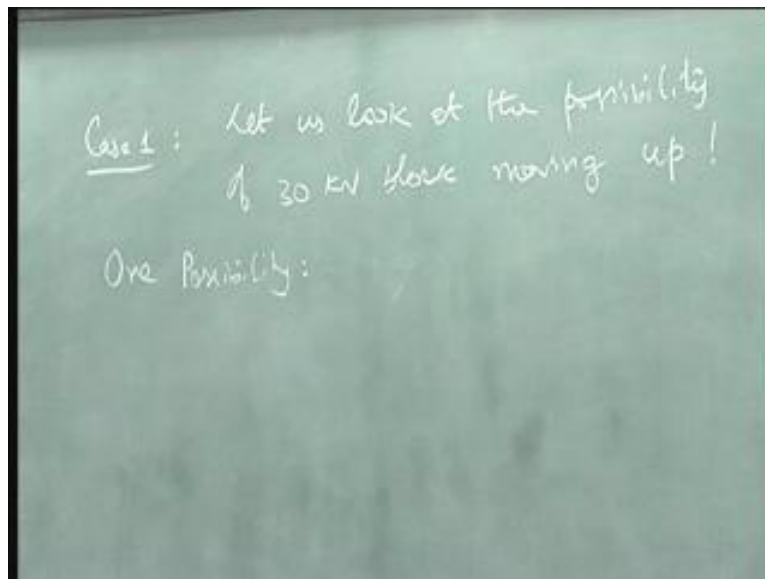 Case 1 : Let us look at the possibility
of 30 kN block moving up !
One Possibility :